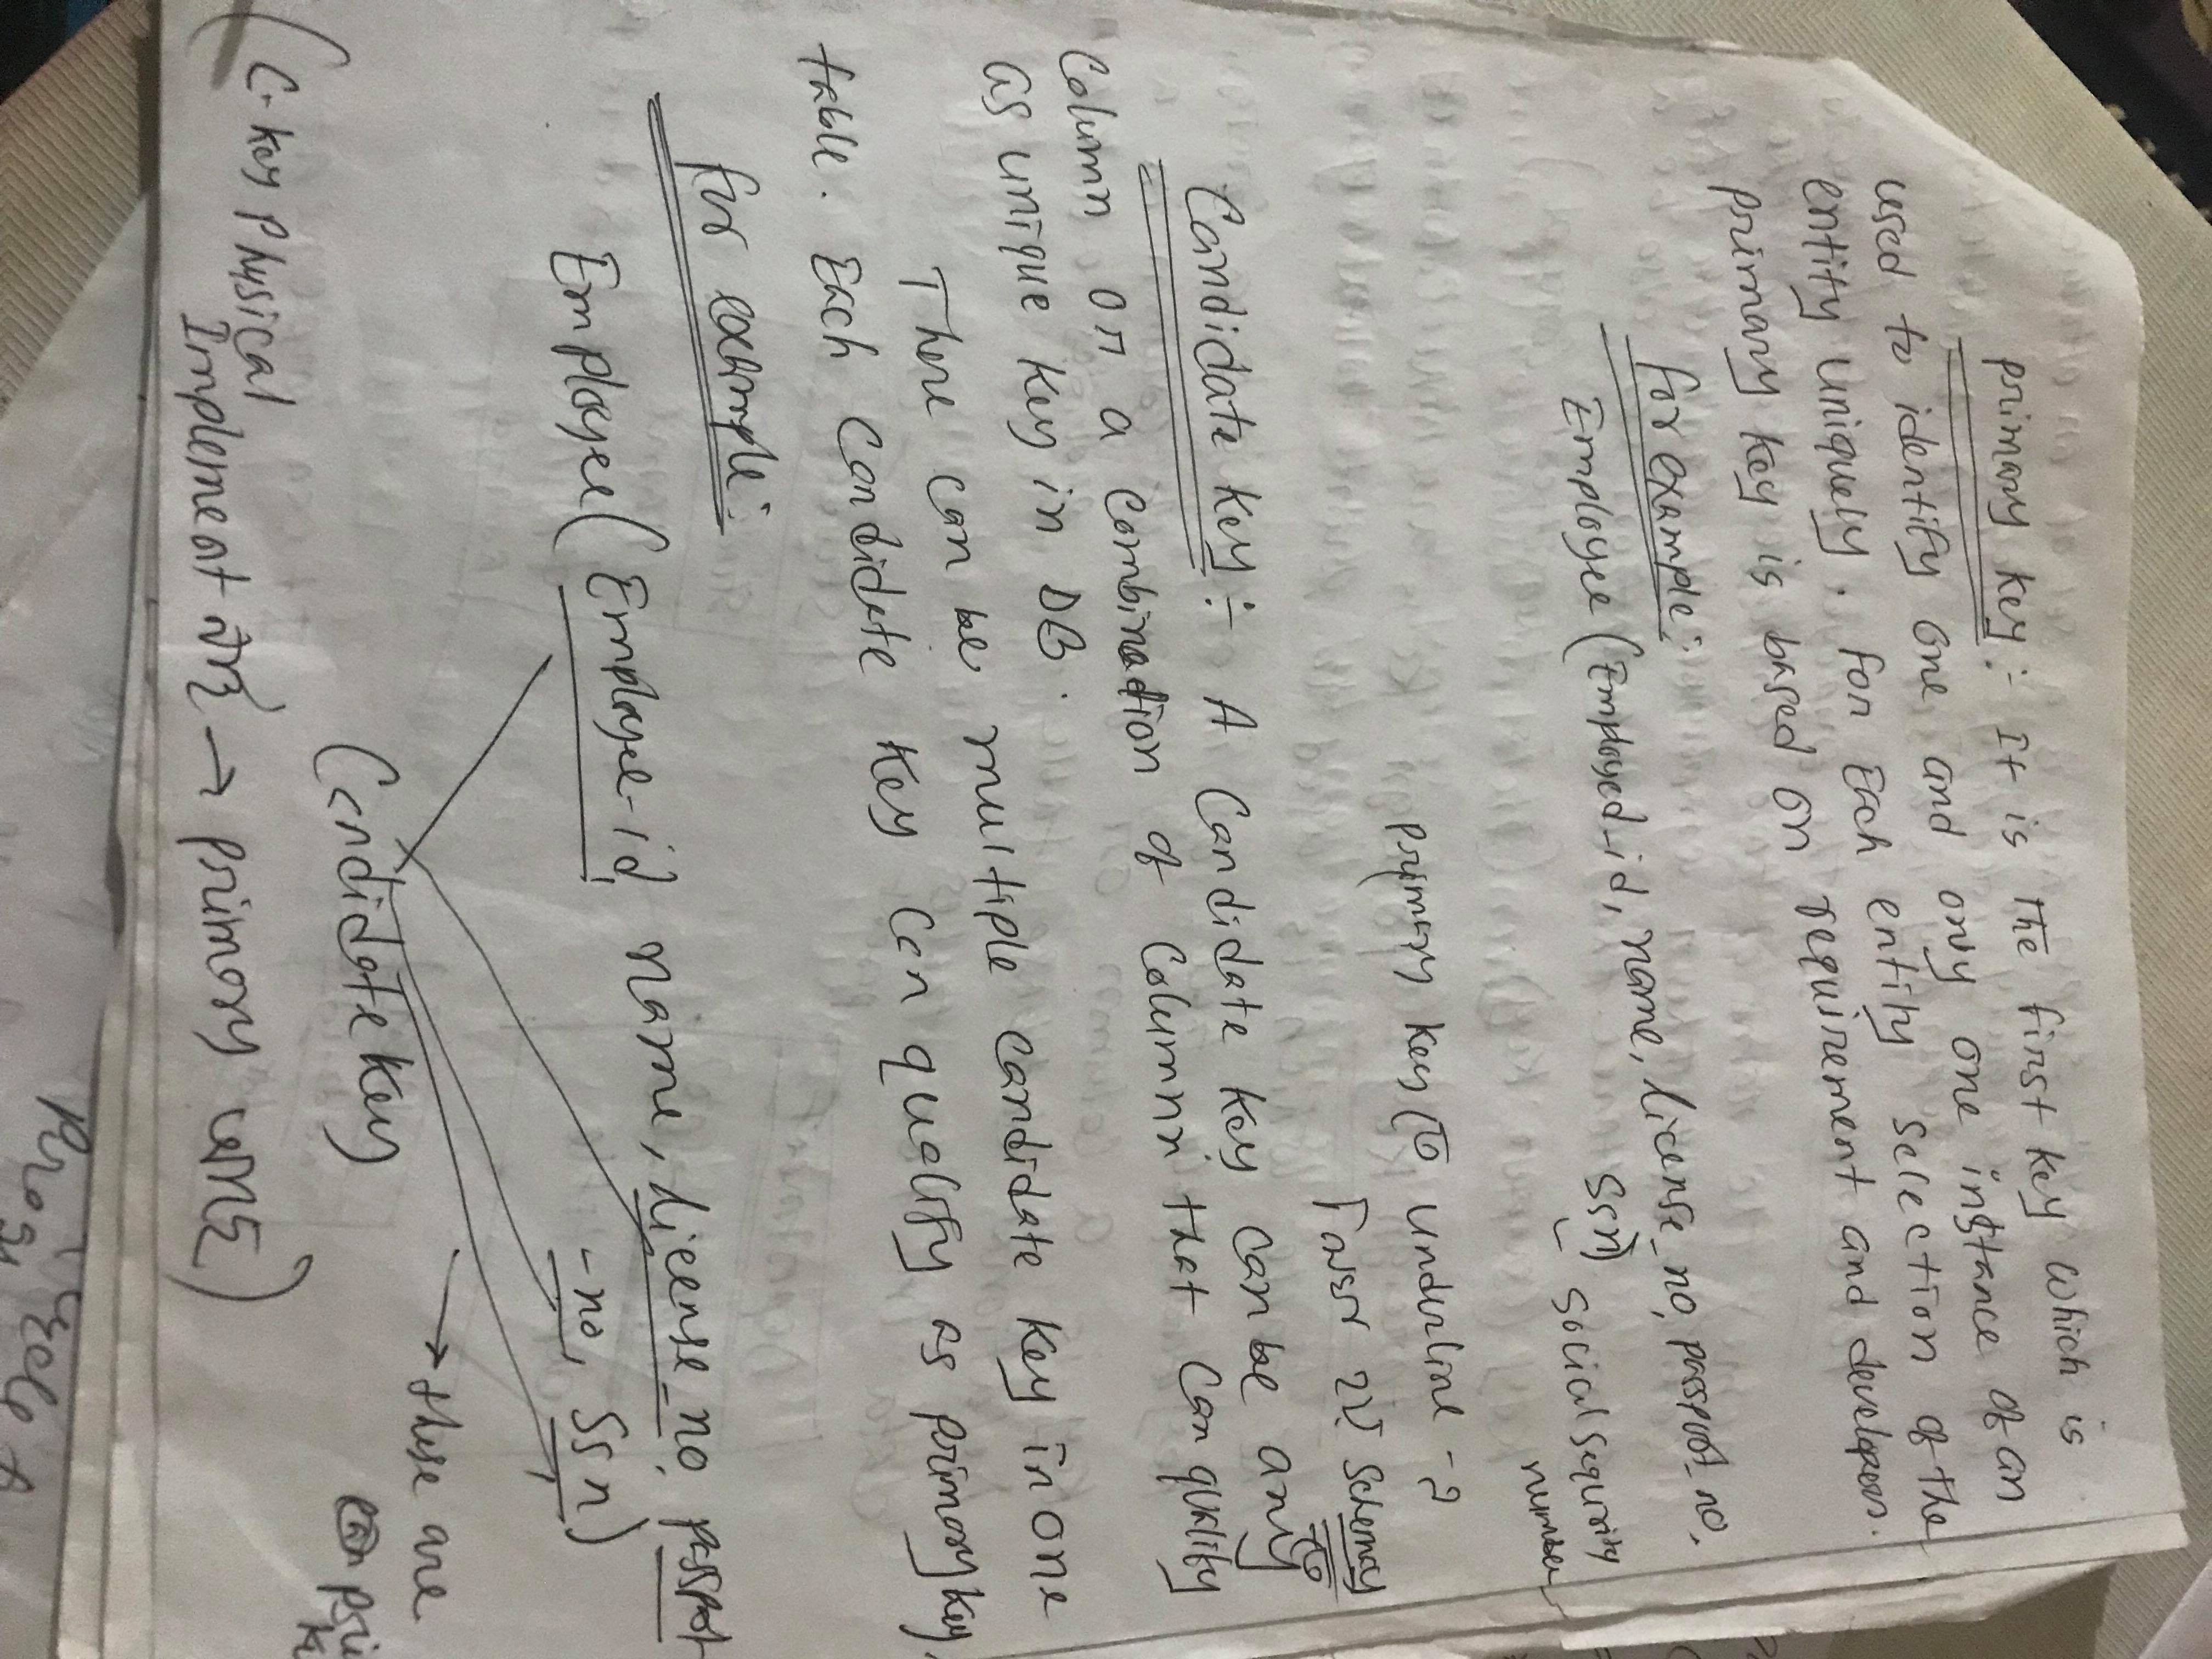 primary key :- It is the first key which is
used to identify one and only one instance of an
entity uniquely. For Each entity selection of the
primary key is based on requirement and developers.
for example:
Employee (Employed_id, name, license_no, passport_no,
Ssn)
- Social Sequrity
number
primary key কে underline -
করতে হয় Schemay
তে
Candidate Key :- A Candidate key can be any
Column or a combination of Columnn that can qualify
as unique key in DB.
There can be multiple candidate key in one
table. Each Candidate key can qualify as primary key.
for example:
Employee ( Employee-id, name, license_no, passport
-no, Ssn)
→ these are
Candidate key
pri
(C-key physical
Implement নাই → primary আছে)
Prog